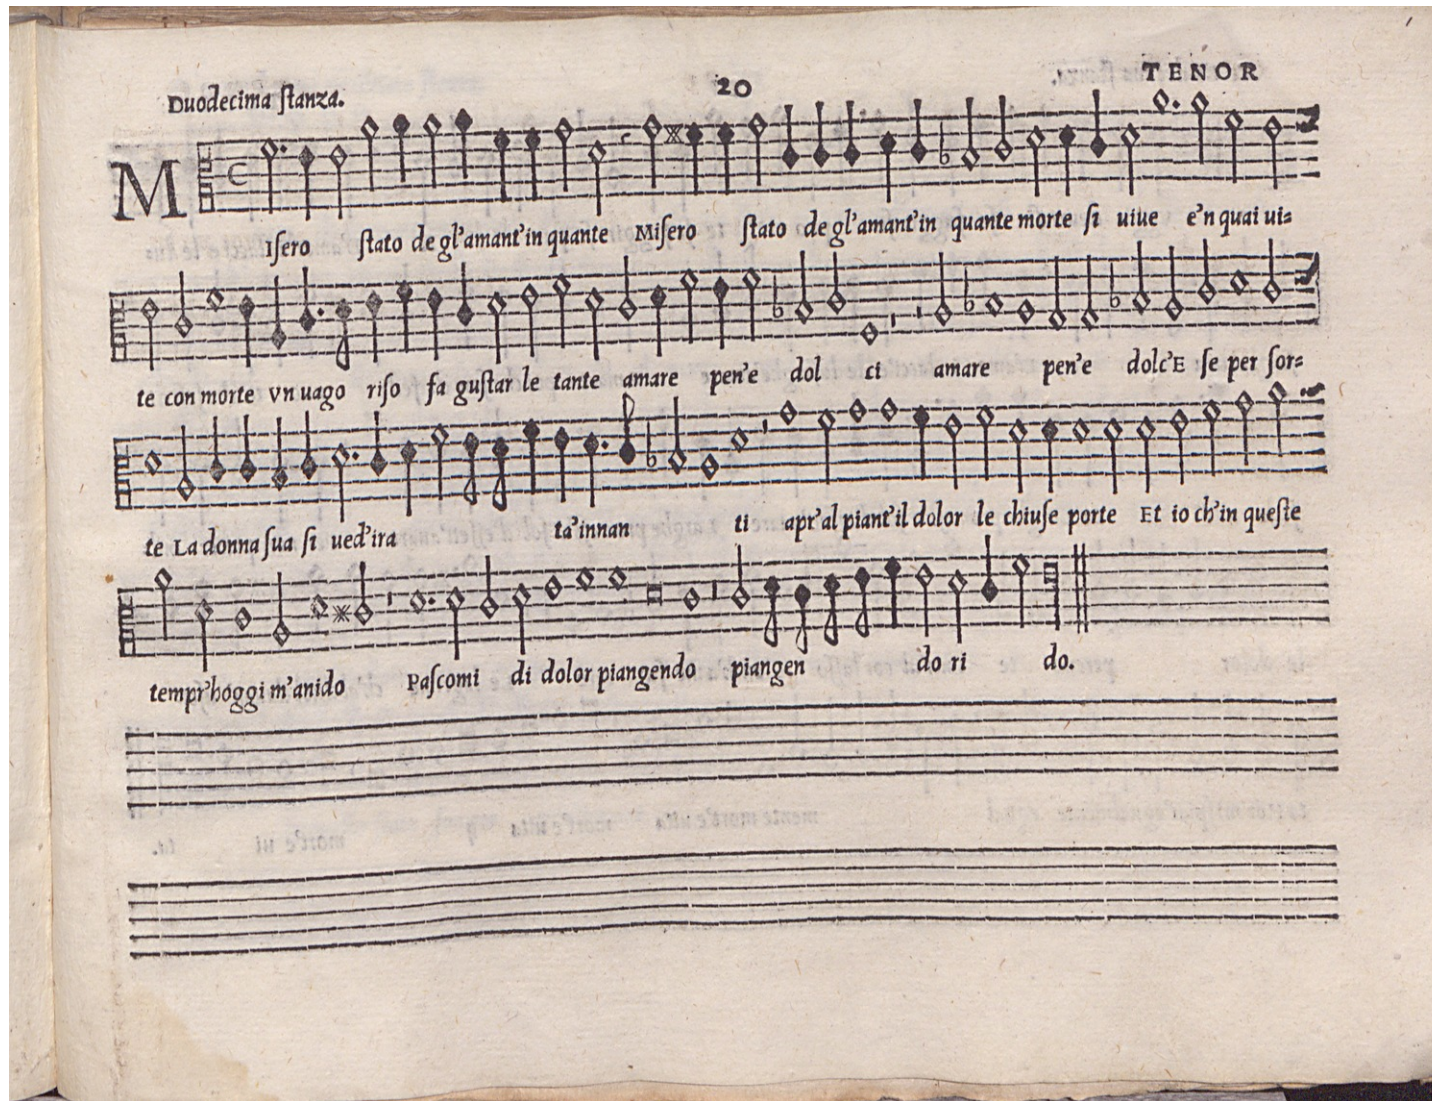 20
TENOR
Duodecima ſtanza.
MIſero ſtato de gl'amant'in quante Miſero ſtato de gl'amant'in quante morte ſi uiue e'n quai ui=
te con morte vn uago riſo fa guſtar le tante amare pen'e dol ci amare pen'e dolc'E ſe per ſor=
te La donna ſua ſi ued'ira ta'innan ti apr'al piant'il dolor le chiuſe porte Et io ch'in queſte
tempr'hoggi m'anido Paſcomi di dolor piangendo piangen do ri do.